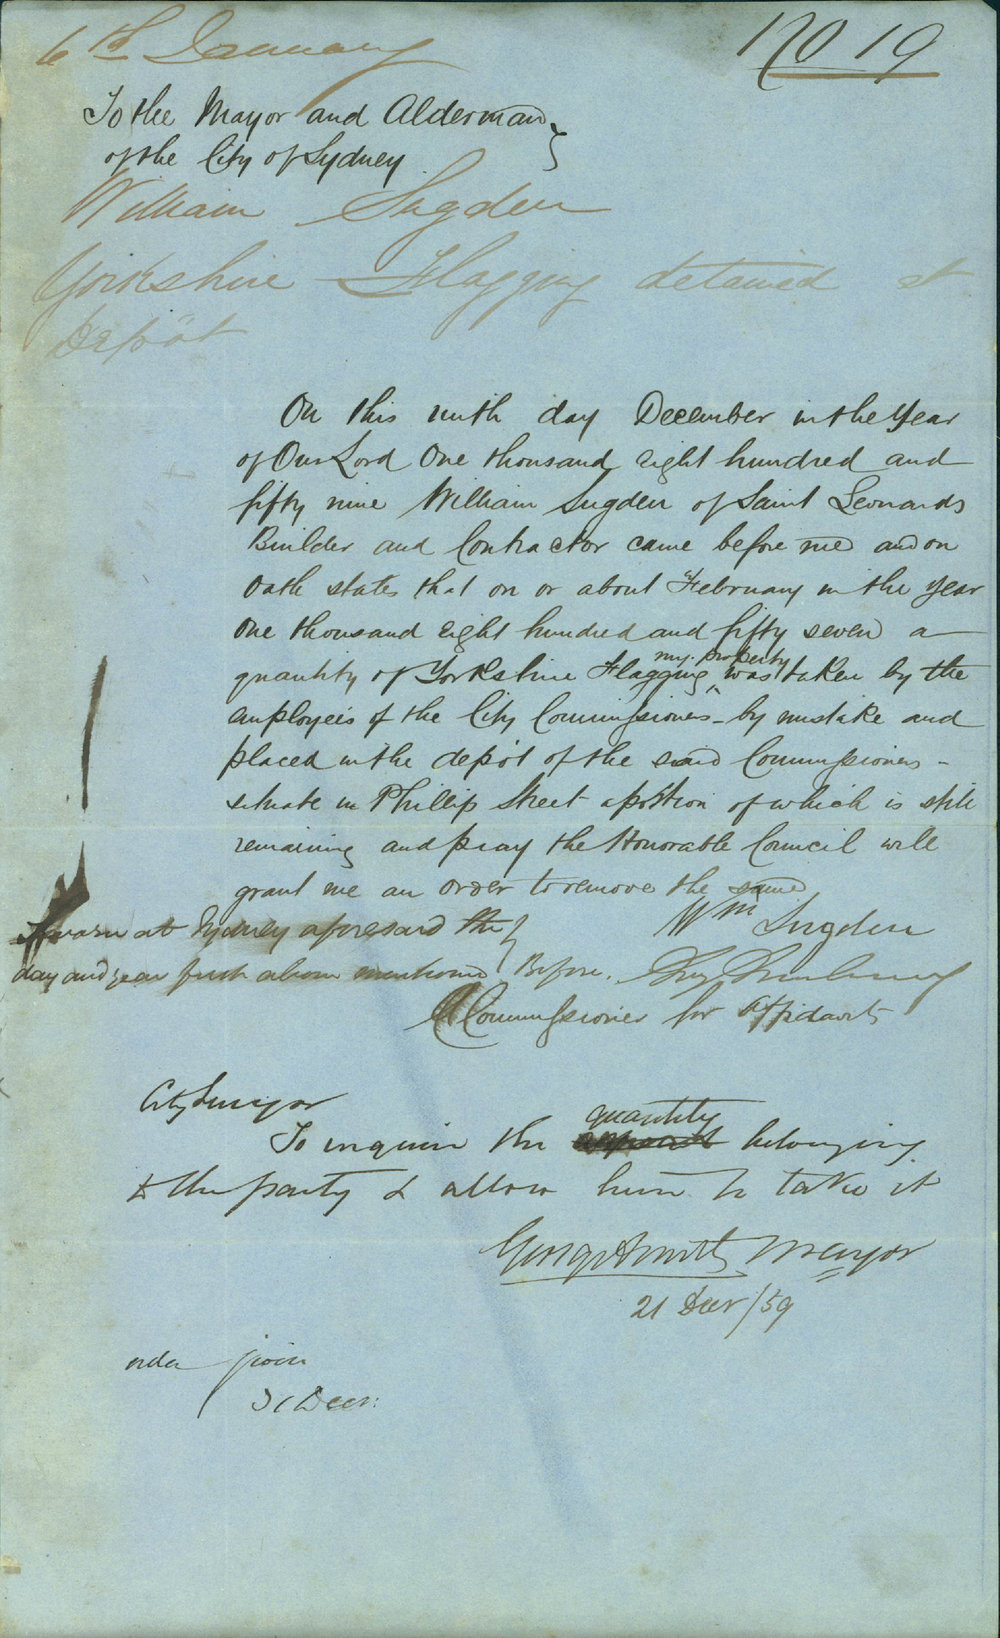 6th January
No 19
To the Mayor and Alderman
of the City of Sydney
William Sugden
Yorkshire Flagging detained at
Depôt
On this ninth day December in the Year
of Our Lord One thousand eight hundred and
fifty nine William Sugden of Saint Leonards
Builder and Contractor came before me and on
oath states that on or about February in the year
one thousand eight hundred and fifty seven a
quantity of Yorkshire Flagging my property was taken by the
employees of the City Commissioners - by mistake and
placed in the depôt of the said Commissioners -
situate in Phillip Street a portion of which is still
remaining and pray the Honorable Council will
grant me an order to remove the same
Wm Sugden
Sworn at Sydney aforesaid the
day and year first above mentioned } Before.
A Commissioner for Affidavits
City Surveyor
To inquire the quantity belonging
to the party & allow him to take it
George Smith Mayor
21 Decr /59
order given
Decr: